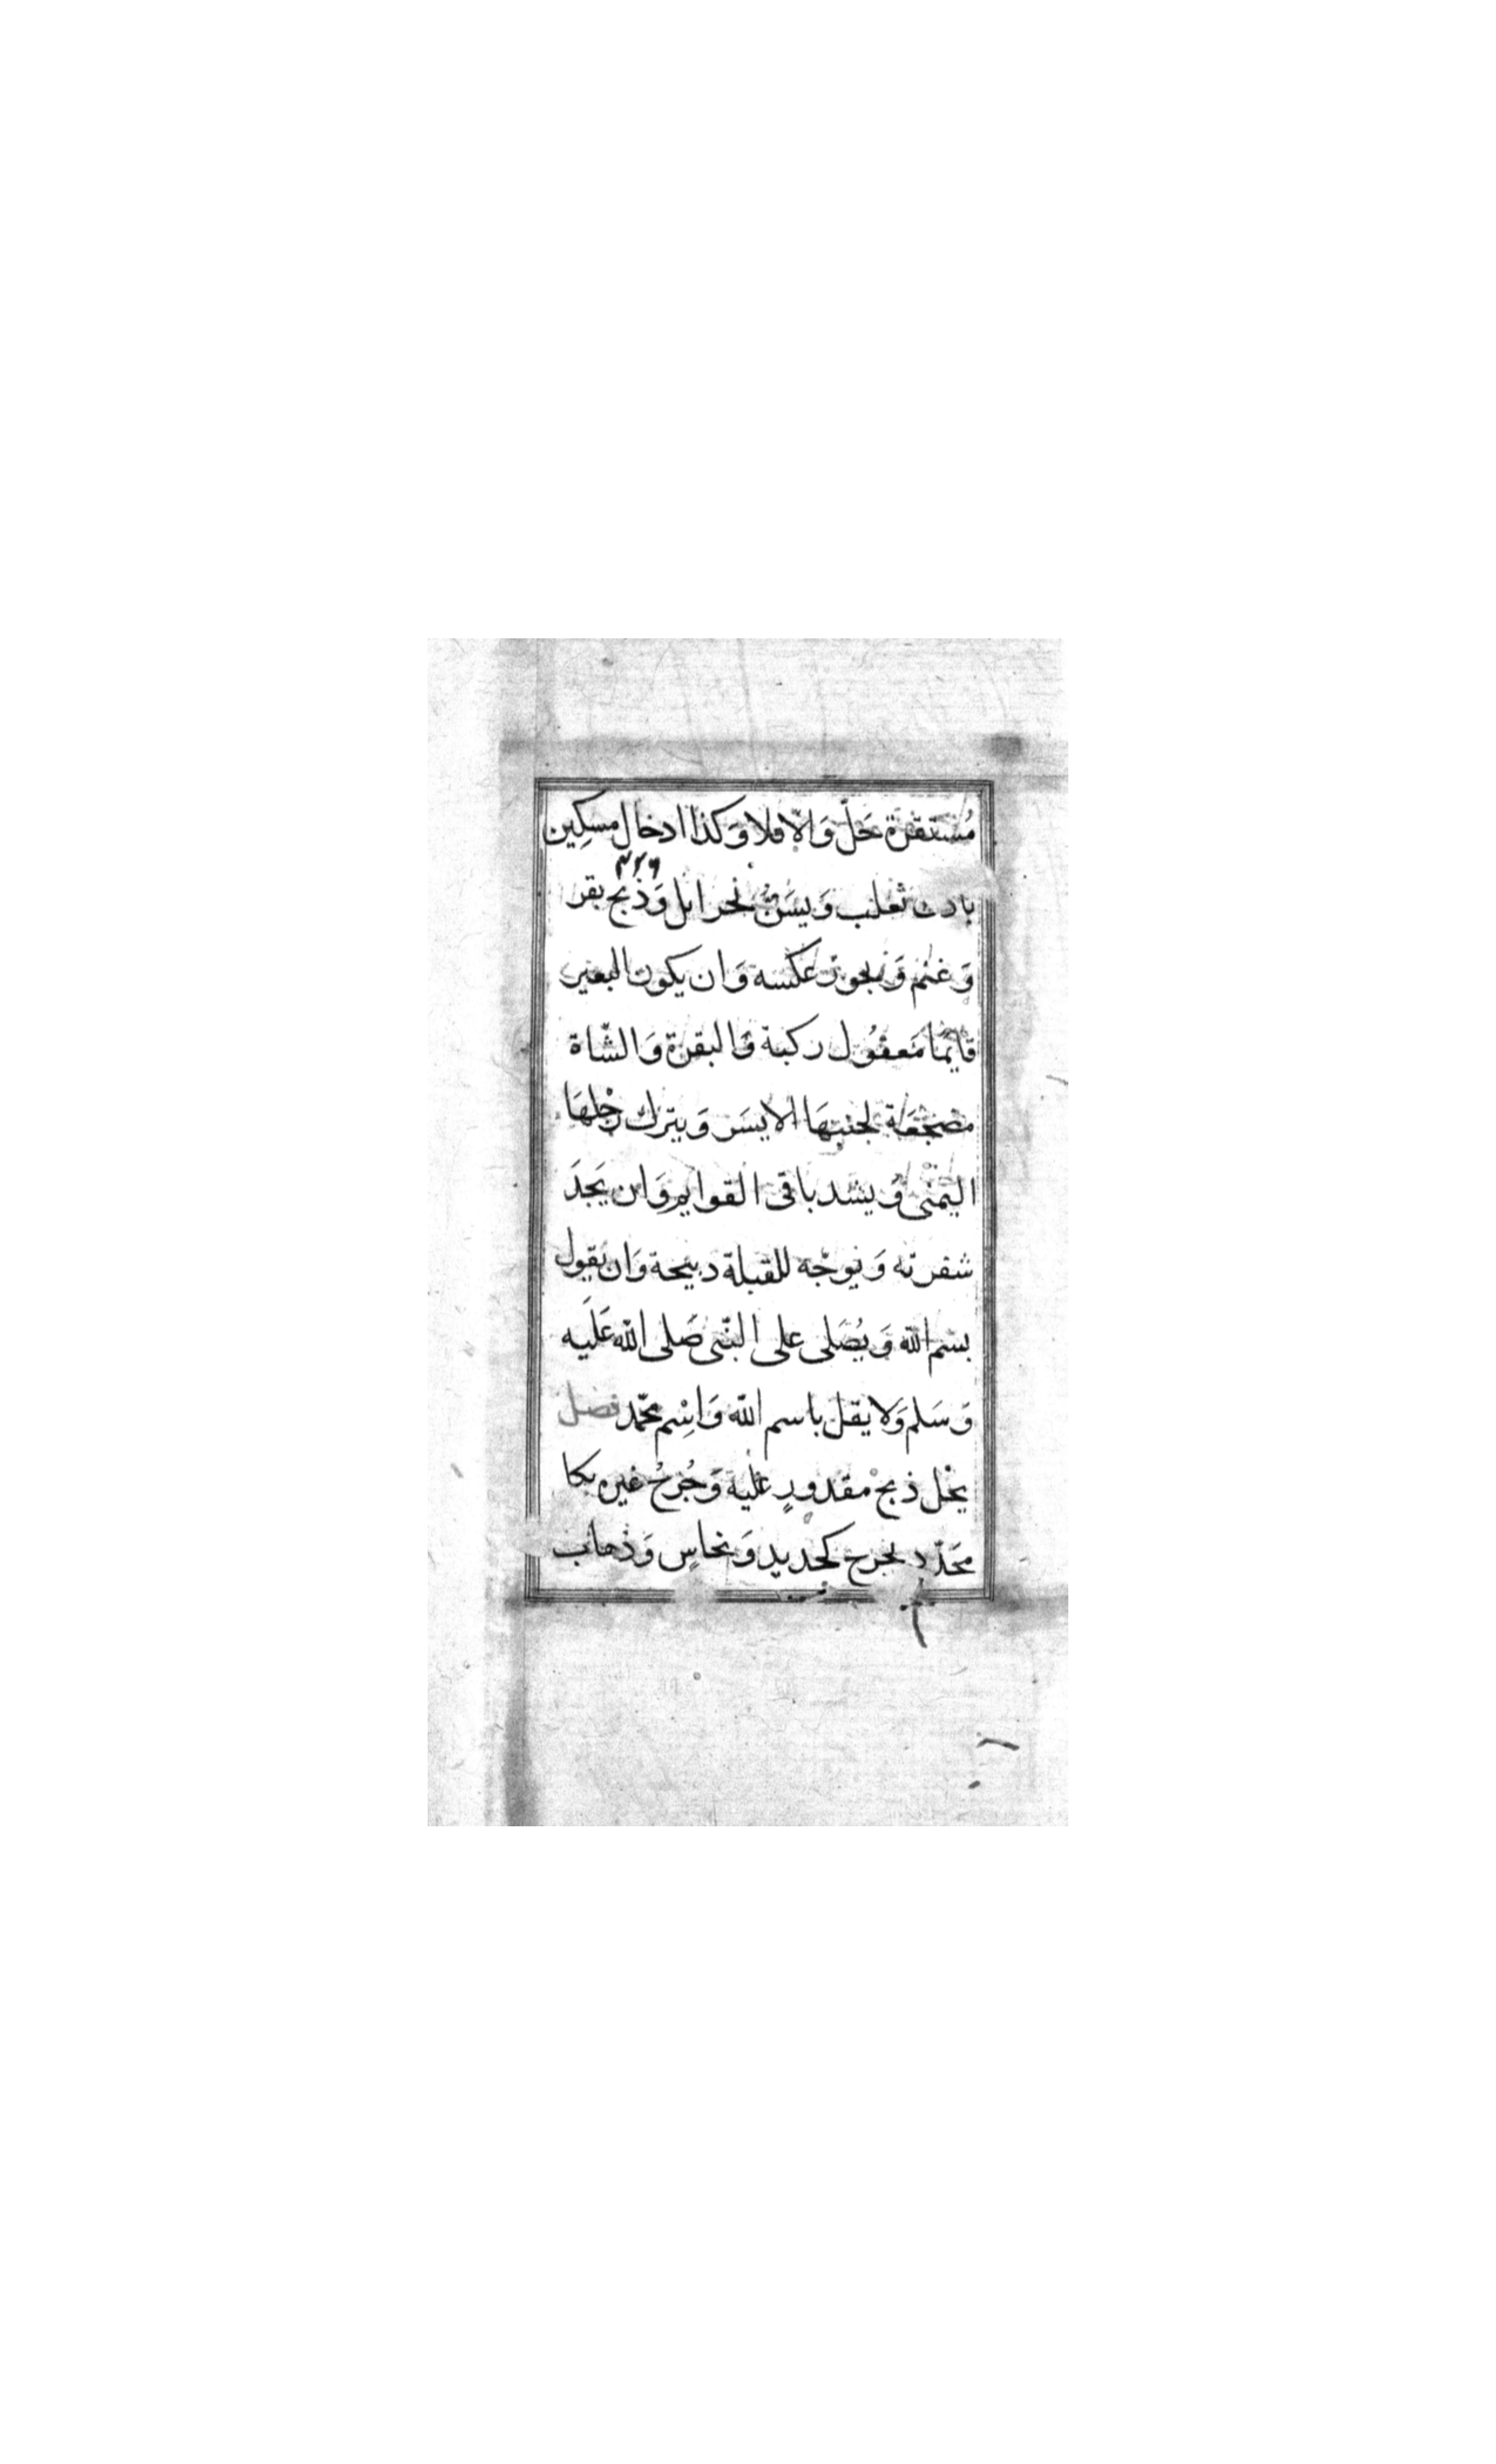 مُستقرة حَلّ وَالّا فلا وَكذا ادخال مسكِين
باذن ثعلب وَيسَنُّ نحر ابل وَذبح بقر
وَغنم وَيجوز عكسه وَان يكون البعير
قايمًا مَعقُول ركبة وَالبقرة وَالشّاة
مضجعَة لجنبهَا الايسَر وَيترك رجْلهَا
اليمْنى وَيشد باقى القوايم وَان يَجدَ
شفرته وَيوجّه للقبلة دبيحة وَان يقول
بسم الله وَيصَلى على النّبى صَلى الله عَليه
وَسَلم وَلا يقل باسم الله وَاسْم محمّد فصل
يحْل ذبحْ مقدورٍ عليه وَجُرحُ غيره بكا
محَدّد لجرح كحديد وَنحاسٍ وَذهاب